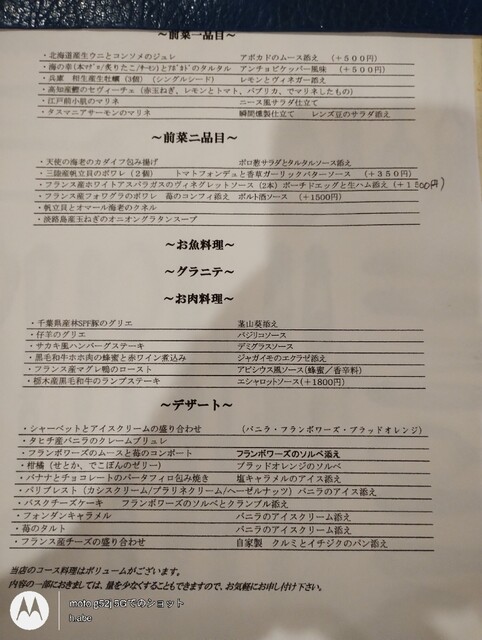 ～前菜一品目～
・北海道産生ウニとコンソメのジュレ　アボカドのムース添え　（＋５００円）
・海の幸(本ﾏｸﾞﾛ/炙りたこ/ｻｰﾓﾝ)とｱﾎﾞｶﾄﾞのタルタル　アンチョビケッパー風味　（＋５００円）
・兵庫　相生産生牡蠣（3個）　（シングルシード）　レモンとヴィネガー添え
・高知産鰹のセヴィーチェ（赤玉ねぎ、レモンとトマト、パプリカ、でマリネしたもの）
・江戸前小肌のマリネ　ニース風サラダ仕立て
・タスマニアサーモンのマリネ　瞬間燻製仕立て　レンズ豆のサラダ添え
～前菜二品目～
・天使の海老のカダイフ包み揚げ　ポロ葱サラダとタルタルソース添え
・三陸産帆立貝のポワレ（２個）　トマトフォンデュと香草ガーリックバターソース　（＋３５０円）
・フランス産ホワイトアスパラガスのヴィネグレットソース（2本）ポーチドエッグと生ハム添え（＋1500円）
・フランス産フォワグラのポワレ　苺のコンフィ添え　ポルト酒ソース　（＋1500円）
・帆立貝とオマール海老のクネル
・淡路島産玉ねぎのオニオングラタンスープ
～お魚料理～
～グラニテ～
～お肉料理～
・千葉県産林SPF豚のグリエ　茎山葵添え
・仔羊のグリエ　バジリコソース
・サカキ風ハンバーグステーキ　デミグラスソース
・黒毛和牛ホホ肉の蜂蜜と赤ワイン煮込み　ジャガイモのエクラゼ添え
・フランス産マグレ鴨のロースト　アピシウス風ソース(蜂蜜／香辛料)
・栃木産黒毛和牛のランプステーキ　エシャロットソース(＋1800円)
～デザート～
・シャーベットとアイスクリームの盛り合わせ　（バニラ・フランボワーズ・ブラッドオレンジ）
・タヒチ産バニラのクレームブリュレ
・フランボワーズのムースと苺のコンポート　フランボワーズのソルベ添え
・柑橘（せとか、でこぽんのゼリー）　ブラッドオレンジのソルベ
・バナナとチョコレートのパータフィロ包み焼き　塩キャラメルのアイス添え
・パリブレスト（カシスクリーム/プラリネクリーム/ヘーゼルナッツ）バニラのアイス添え
・バスクチーズケーキ　フランボワーズのソルベとクランブル添え
・フォンダンキャラメル　バニラのアイスクリーム添え
・苺のタルト　バニラのアイスクリーム添え
・フランス産チーズの盛り合わせ　自家製　クルミとイチジクのパン添え
当店のコース料理はボリュームがございます。
内容の一部におきましては、量を少なくすることもできますので、お気軽にお申し付け下さい。
moto g52j 5Gでのショット
h.abe